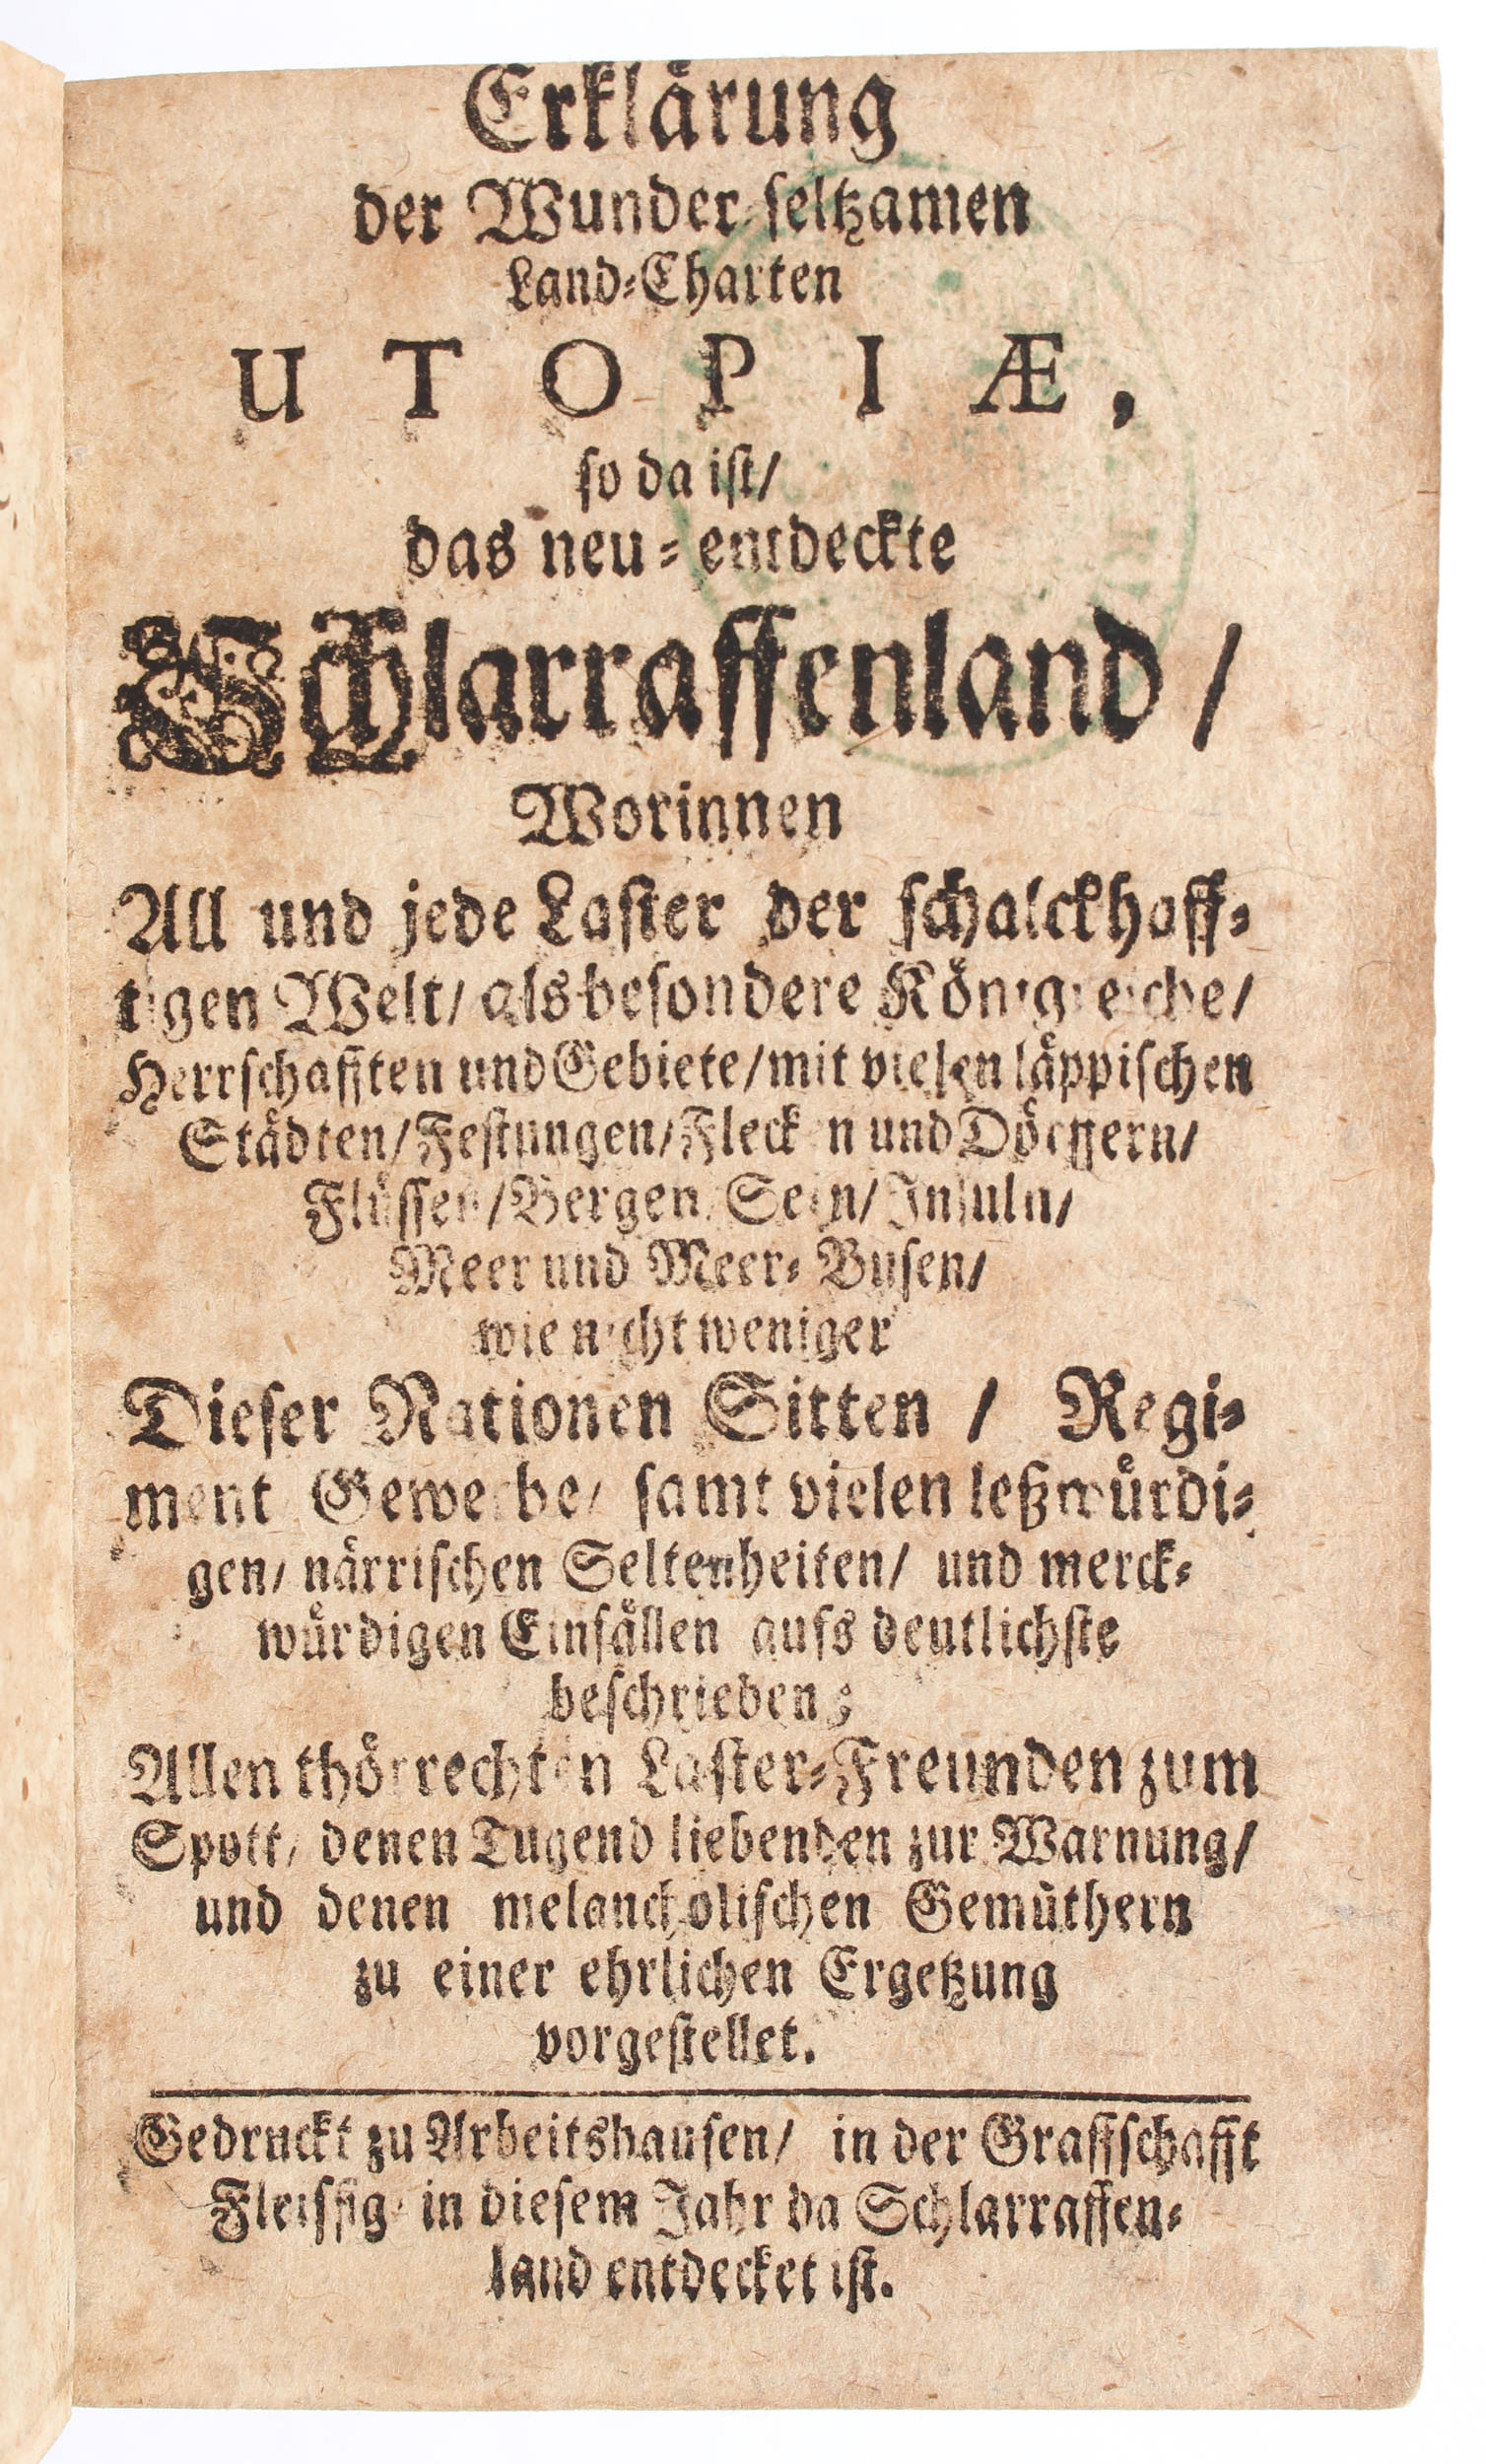 Erklårung
der Wunder-ſeltzamen
Land-Charten
UTOPIÆ,
ſo da iſt/
das neu-entdeckte
Schlarraffenland/
Worinnen
All und jede Laſter der ſchalckhaff-
tigen Welt/ als beſondere Kőnigreiche/
Herrſchafften und Gebiete/mit vielen låppiſchen
Stådten/Feſtungen/Flecken und Dőrffern/
Flůſſen/Bergen/Seen/Inſuln/
Meer und Meer-Buſen/
wie nicht weniger
Dieſer Nationen Sitten / Regi-
ment Gewerbe/ ſamt vielen leßwůrdi-
gen/ nårriſchen Seltenheiten/ und merck-
wůrdigen Einfållen aufs deutlichſte
beſchrieben;
Allen thőrrechten Laſter-Freunden zum
Spott/ denen Tugend liebenden zur Warnung/
und denen melancholiſchen Gemůthern
zu einer ehrlichen Ergetzung
vorgeſtellet.
Gedruckt zu Arbeitshauſen/ in der Graffſchafft
Fleiſſig/ in dieſem Jahr da Schlarraffen-
land entdecket iſt.